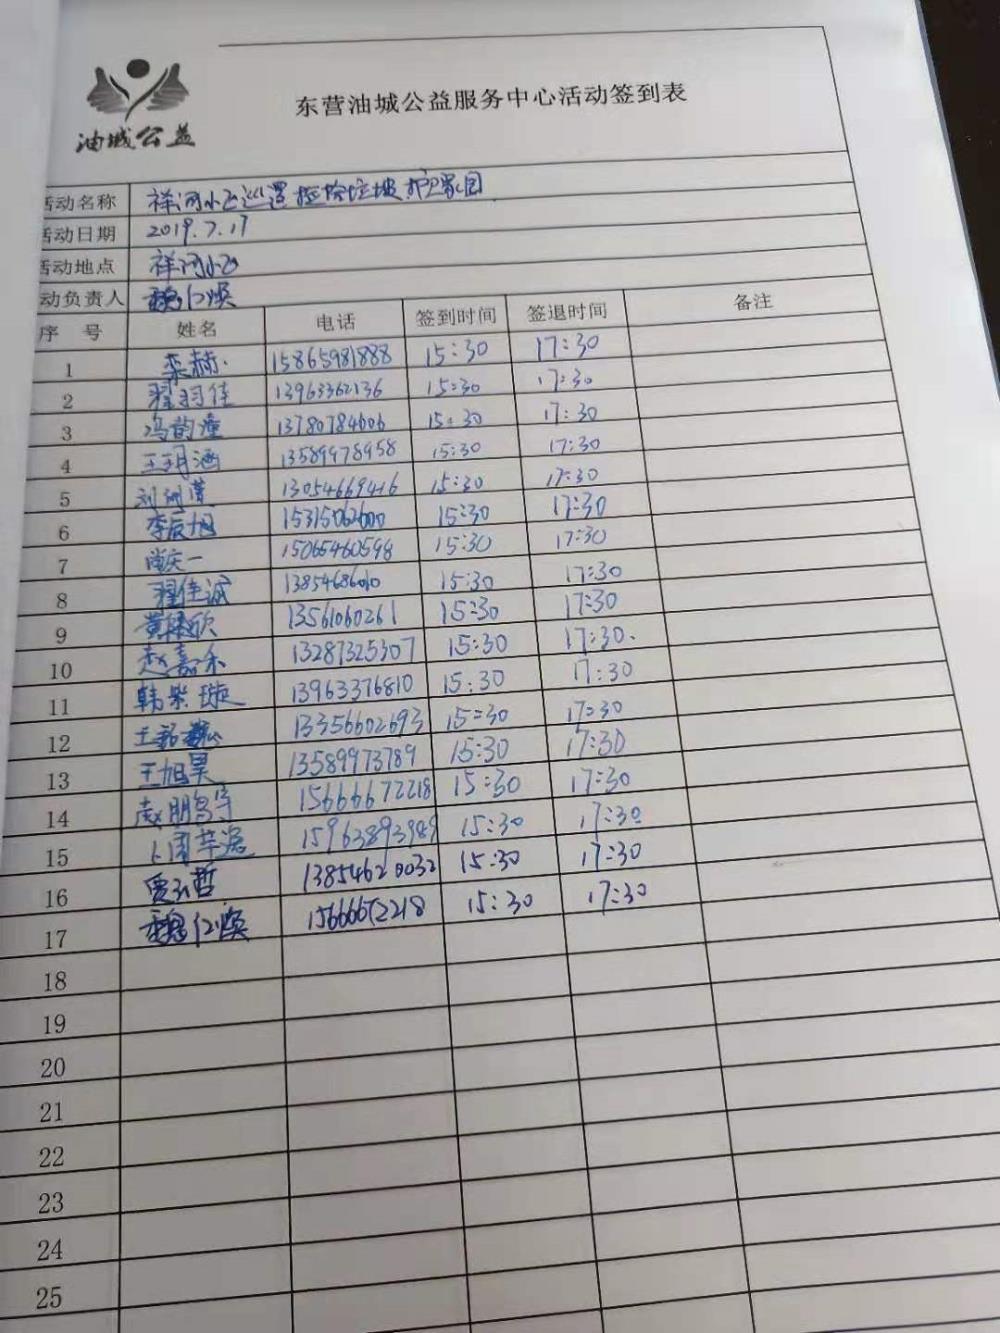 油城公益
东营油城公益服务中心活动签到表
活动名称 祥河小区巡逻捡拾垃圾 护卫家园
活动日期 2019.7.17
活动地点 祥河小区
活动负责人 魏仁焕
序 号 姓名 电话 签到时间 签退时间 备注
1 栾赫 15865981888 15:30 17:30
2 翟羽佳 13963362136 15:30 17:30
3 冯韵潼 13780784606 15:30 17:30
4 王玥涵 13589978958 15:30 17:30
5 刘 13054669416 15:30 17:30
6 李辰旭 15315062600 15:30 17:30
7 尚庆一 15065460598 15:30 17:30
8 翟佳诚 13854686010 15:30 17:30
9 黄 欣 13561060261 15:30 17:30
10 赵嘉禾 13287325307 15:30 17:30
11 韩紫璇 13963376810 15:30 17:30
12 王 13356602693 15:30 17:30
13 王旭昊 13589973789 15:30 17:30
14 赵朋 宇 15666672218 15:30 17:30
15 15963893989 15:30 17:30
16 贾弘哲 13854620032 15:30 17:30
17 魏仁焕 15666672218 15:30 17:30
18
19
20
21
22
23
24
25